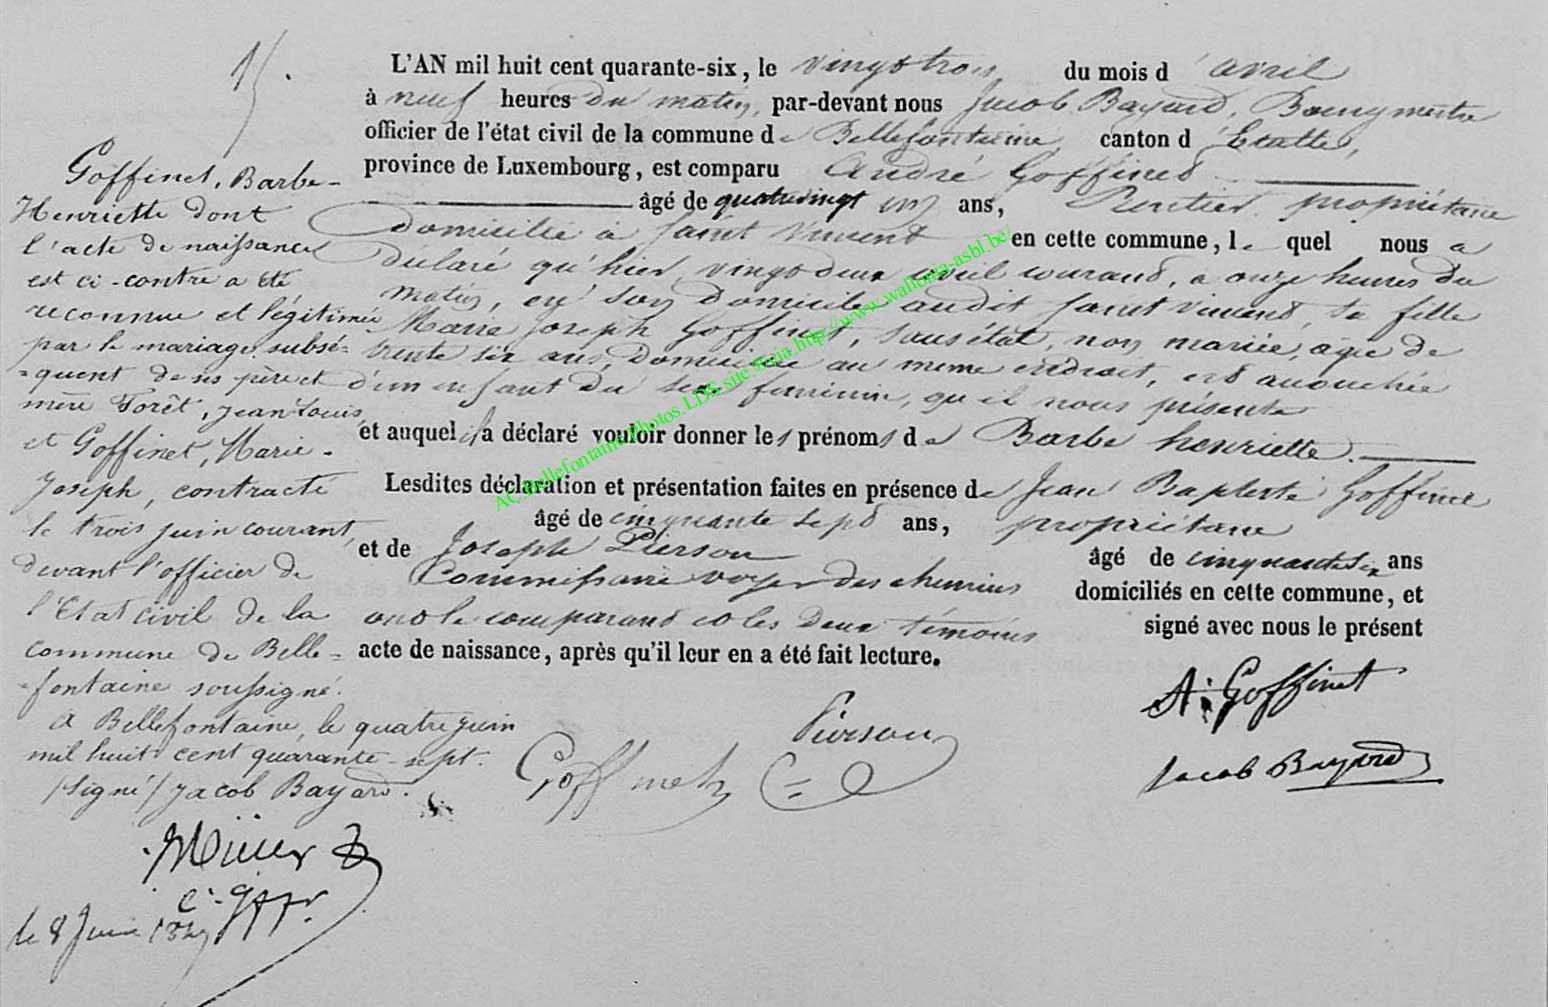 15.
L'AN mil huit cent quarante-six, le vingt trois du mois d'avril
à neuf heures du matin, par-devant nous Jacob Bayard, Bourgmestre
officier de l'état civil de la commune de Bellefontaine, canton d'Etalle,
province de Luxembourg, est comparu André Goffinet
âgé de quatrevingt un ans, Rentier propriétaire
domicilié à Saint Vincent en cette commune, lequel nous a
déclaré qu'hier vingt deux avril courant, a onze heures du
matin, en son domicile audit Saint Vincent, sa fille
Marie Joseph Goffinet, sans état, non mariée, agée de
trente six ans, domiciliée au meme endroit, est accouchée
d'un enfant du sexe feminin, qu'il nous présente
et auquel il a déclaré vouloir donner les prénoms de Barbe henriette.
Lesdites déclaration et présentation faites en présence de Jean Baptiste Goffinet
âgé de cinquante sept ans, propriétaire
et de Joseph Pierson âgé de cinquante six ans
Commissaire voyer des chemins domiciliés en cette commune, et
ont le comparant et les deux témoins signé avec nous le présent
acte de naissance, après qu'il leur en a été fait lecture.
A. Goffinet
Pierson
Goffinet
Jacob Bayard
Goffinet, Barbe-
Henriette dont
l'acte de naissance
est ci-contre a été
reconnue et légitimée
par le mariage subsé-
quent de ses père et
mère Forêt, Jean Louis,
et Goffinet, Marie-
Joseph, contracté
le trois juin courant,
devant l'officier de
l'Etat civil de la
commune de Belle-
fontaine soussigné.
A Bellefontaine, le quatre juin
mil huit cent quarante-sept.
/Signé/ Jacob Bayard.
le 8 Juin 1847
AC.Bellefontaine.Photos.LDS.site.luxia.http://www.wallonia-asbl.be/